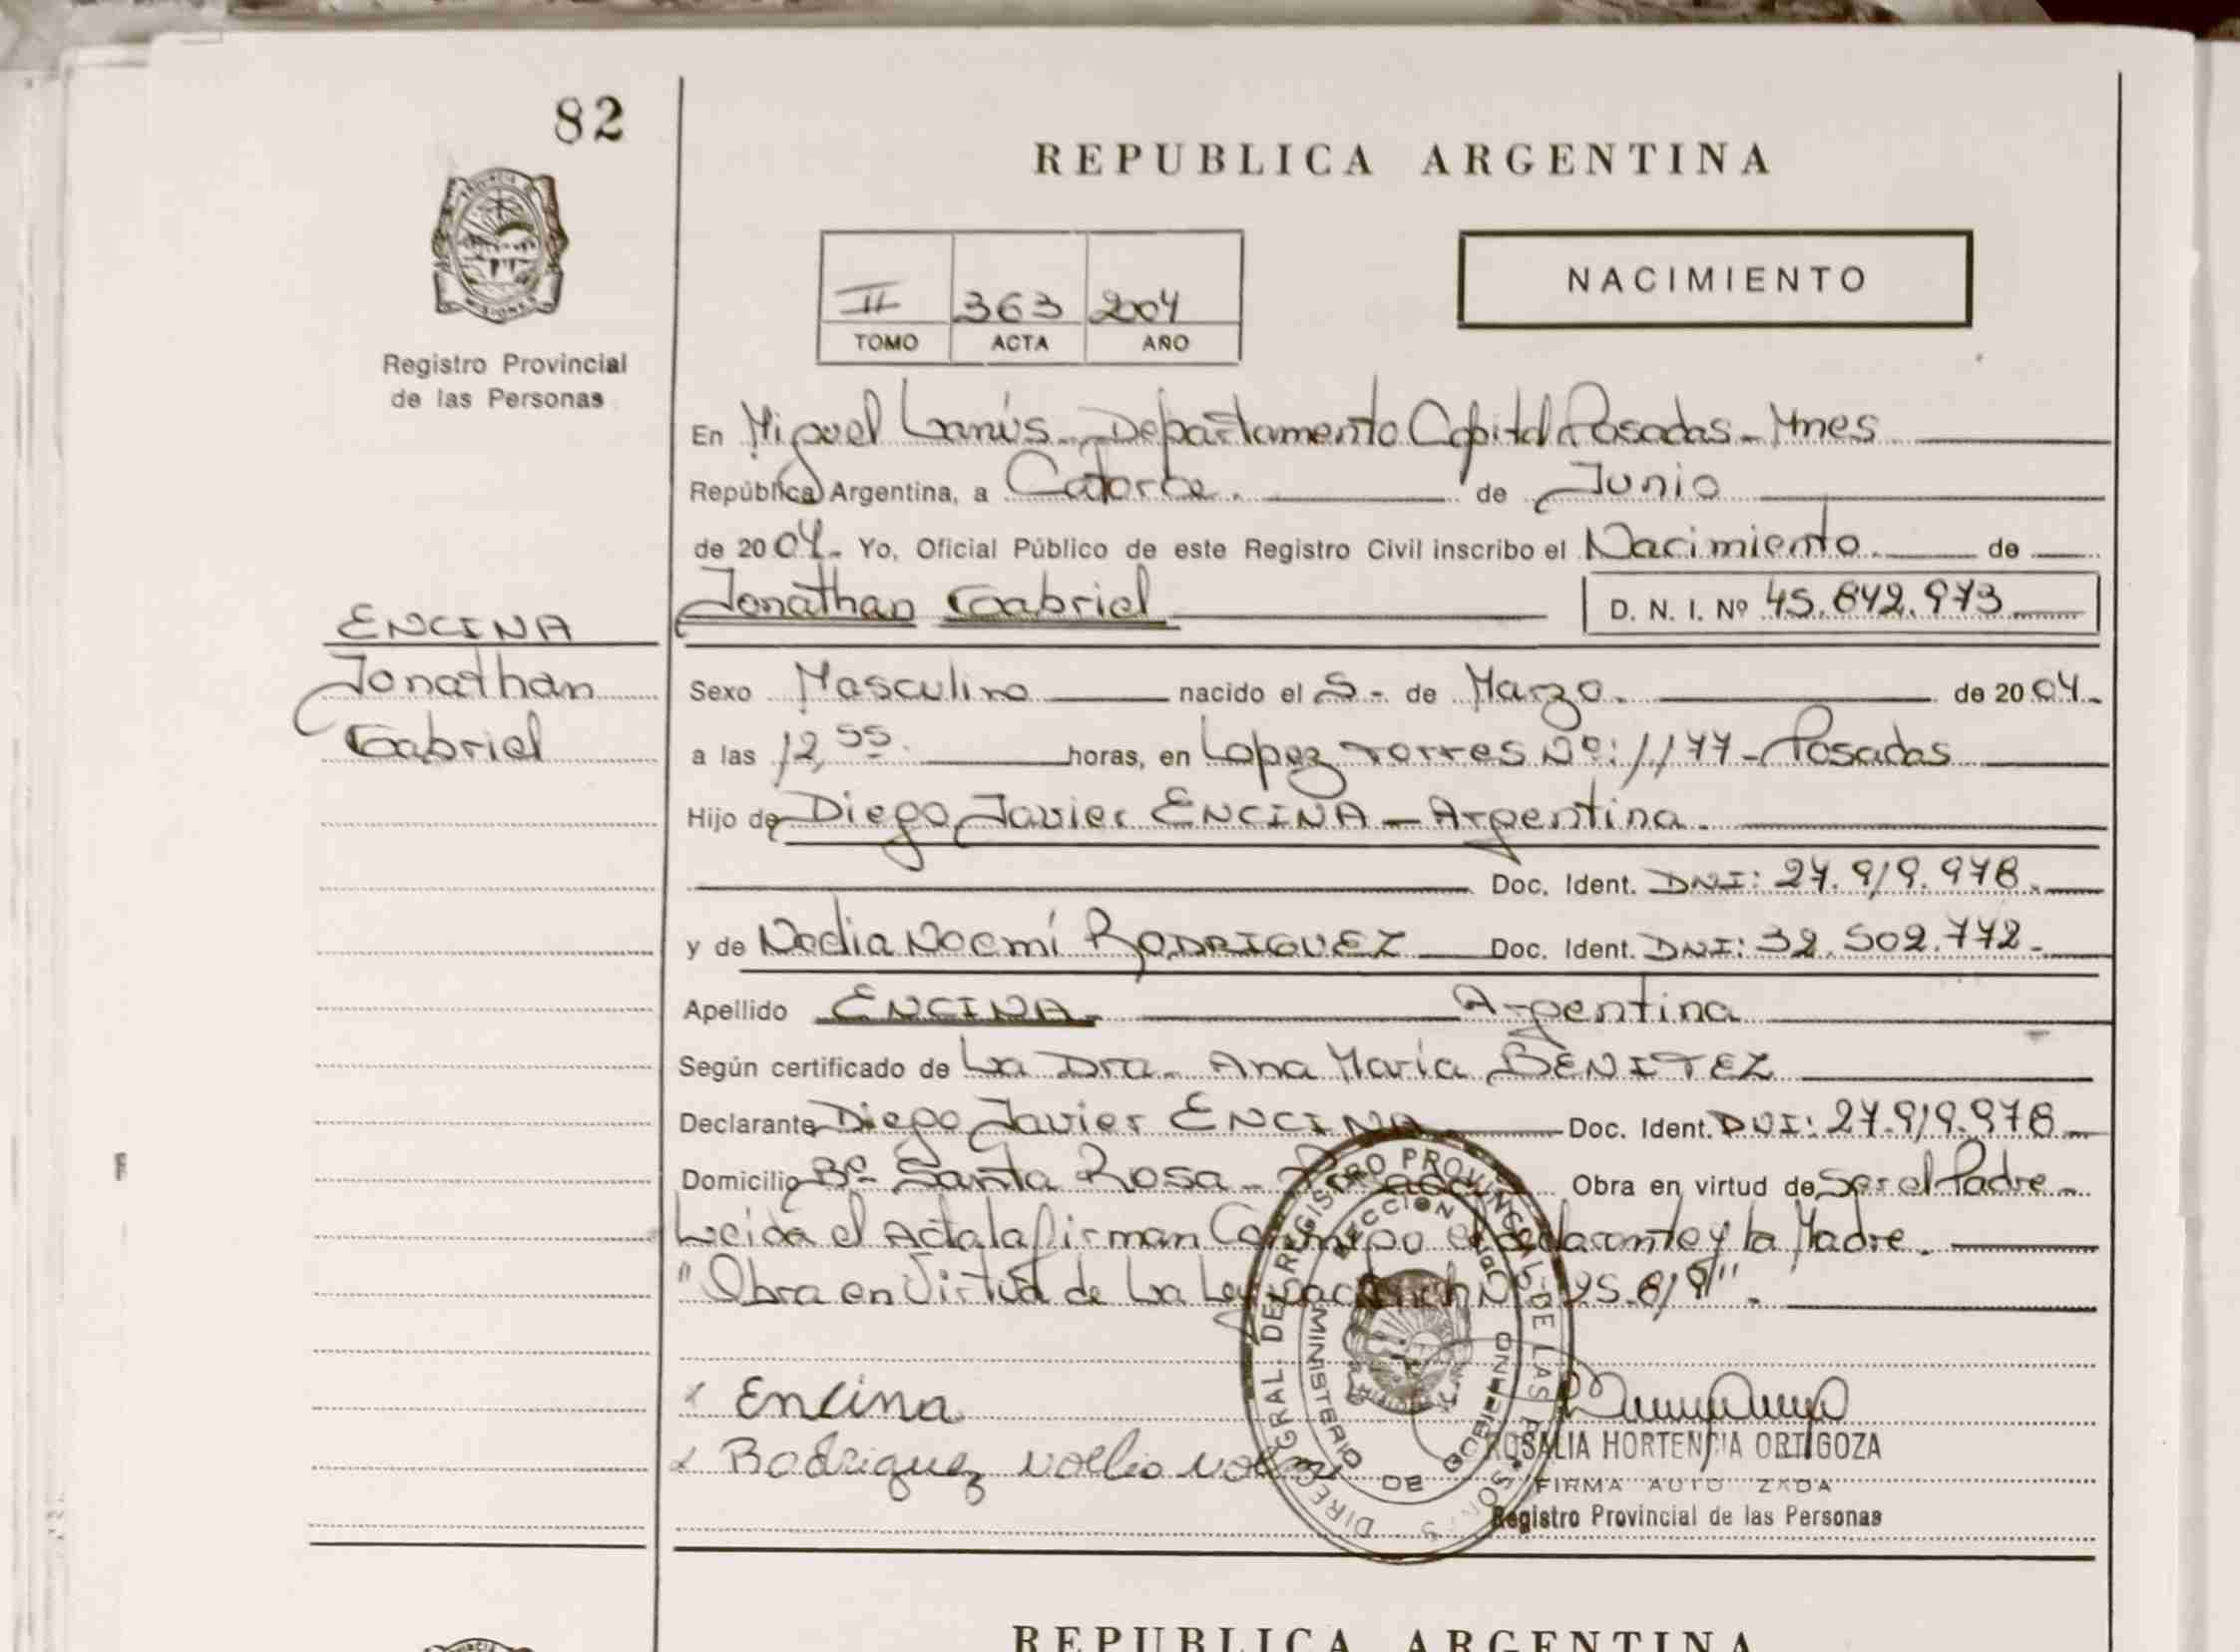 82
REPUBLICA ARGENTINA
PROVINCIA DE
MISIONES
Registro Provincial
de las Personas
II 363 2004
TOMO ACTA AÑO
NACIMIENTO
En Miguel Lanús - Departamento Capital Posadas - Mnes
República Argentina, a Catorce. de Junio
de 2004. Yo, Oficial Público de este Registro Civil inscribo el Nacimiento. de
Jonathan Gabriel D. N. I. Nº 45.842.973
ENCINA
Jonathan
Gabriel
Sexo Masculino nacido el 5 - de Marzo. de 2004.
a las 12,55. horas, en Lopez Torres Nº: 1177 - Posadas
Hijo de Diego Javier ENCINA - Argentina.
Doc. Ident. DNI: 27.919.978.
y de Nadia Noemí RODRIGUEZ Doc. Ident. DNI: 32.502.772.
Apellido ENCINA - Argentina
Según certificado de La Dra. Ana María BENITEZ
Declarante Diego Javier ENCINA Doc. Ident. DNI: 27.919.978
Domicilio Bº Santa Rosa - Posadas Obra en virtud de Ser el Padre -
Leida el Acta la firman Conmigo el declarante y la Madre.
"Obra en Virtud de La Ley Nacional Nº 25.819".
Encina
Rodriguez
DIREC. GRAL. DEL REGISTRO PROVINCIAL DE LAS PERSONAS
MINISTERIO DE GOBIERNO
ROSALIA HORTENCIA ORTIGOZA
FIRMA AUTORIZADA
Registro Provincial de las Personas
REPUBLICA ARGENTINA